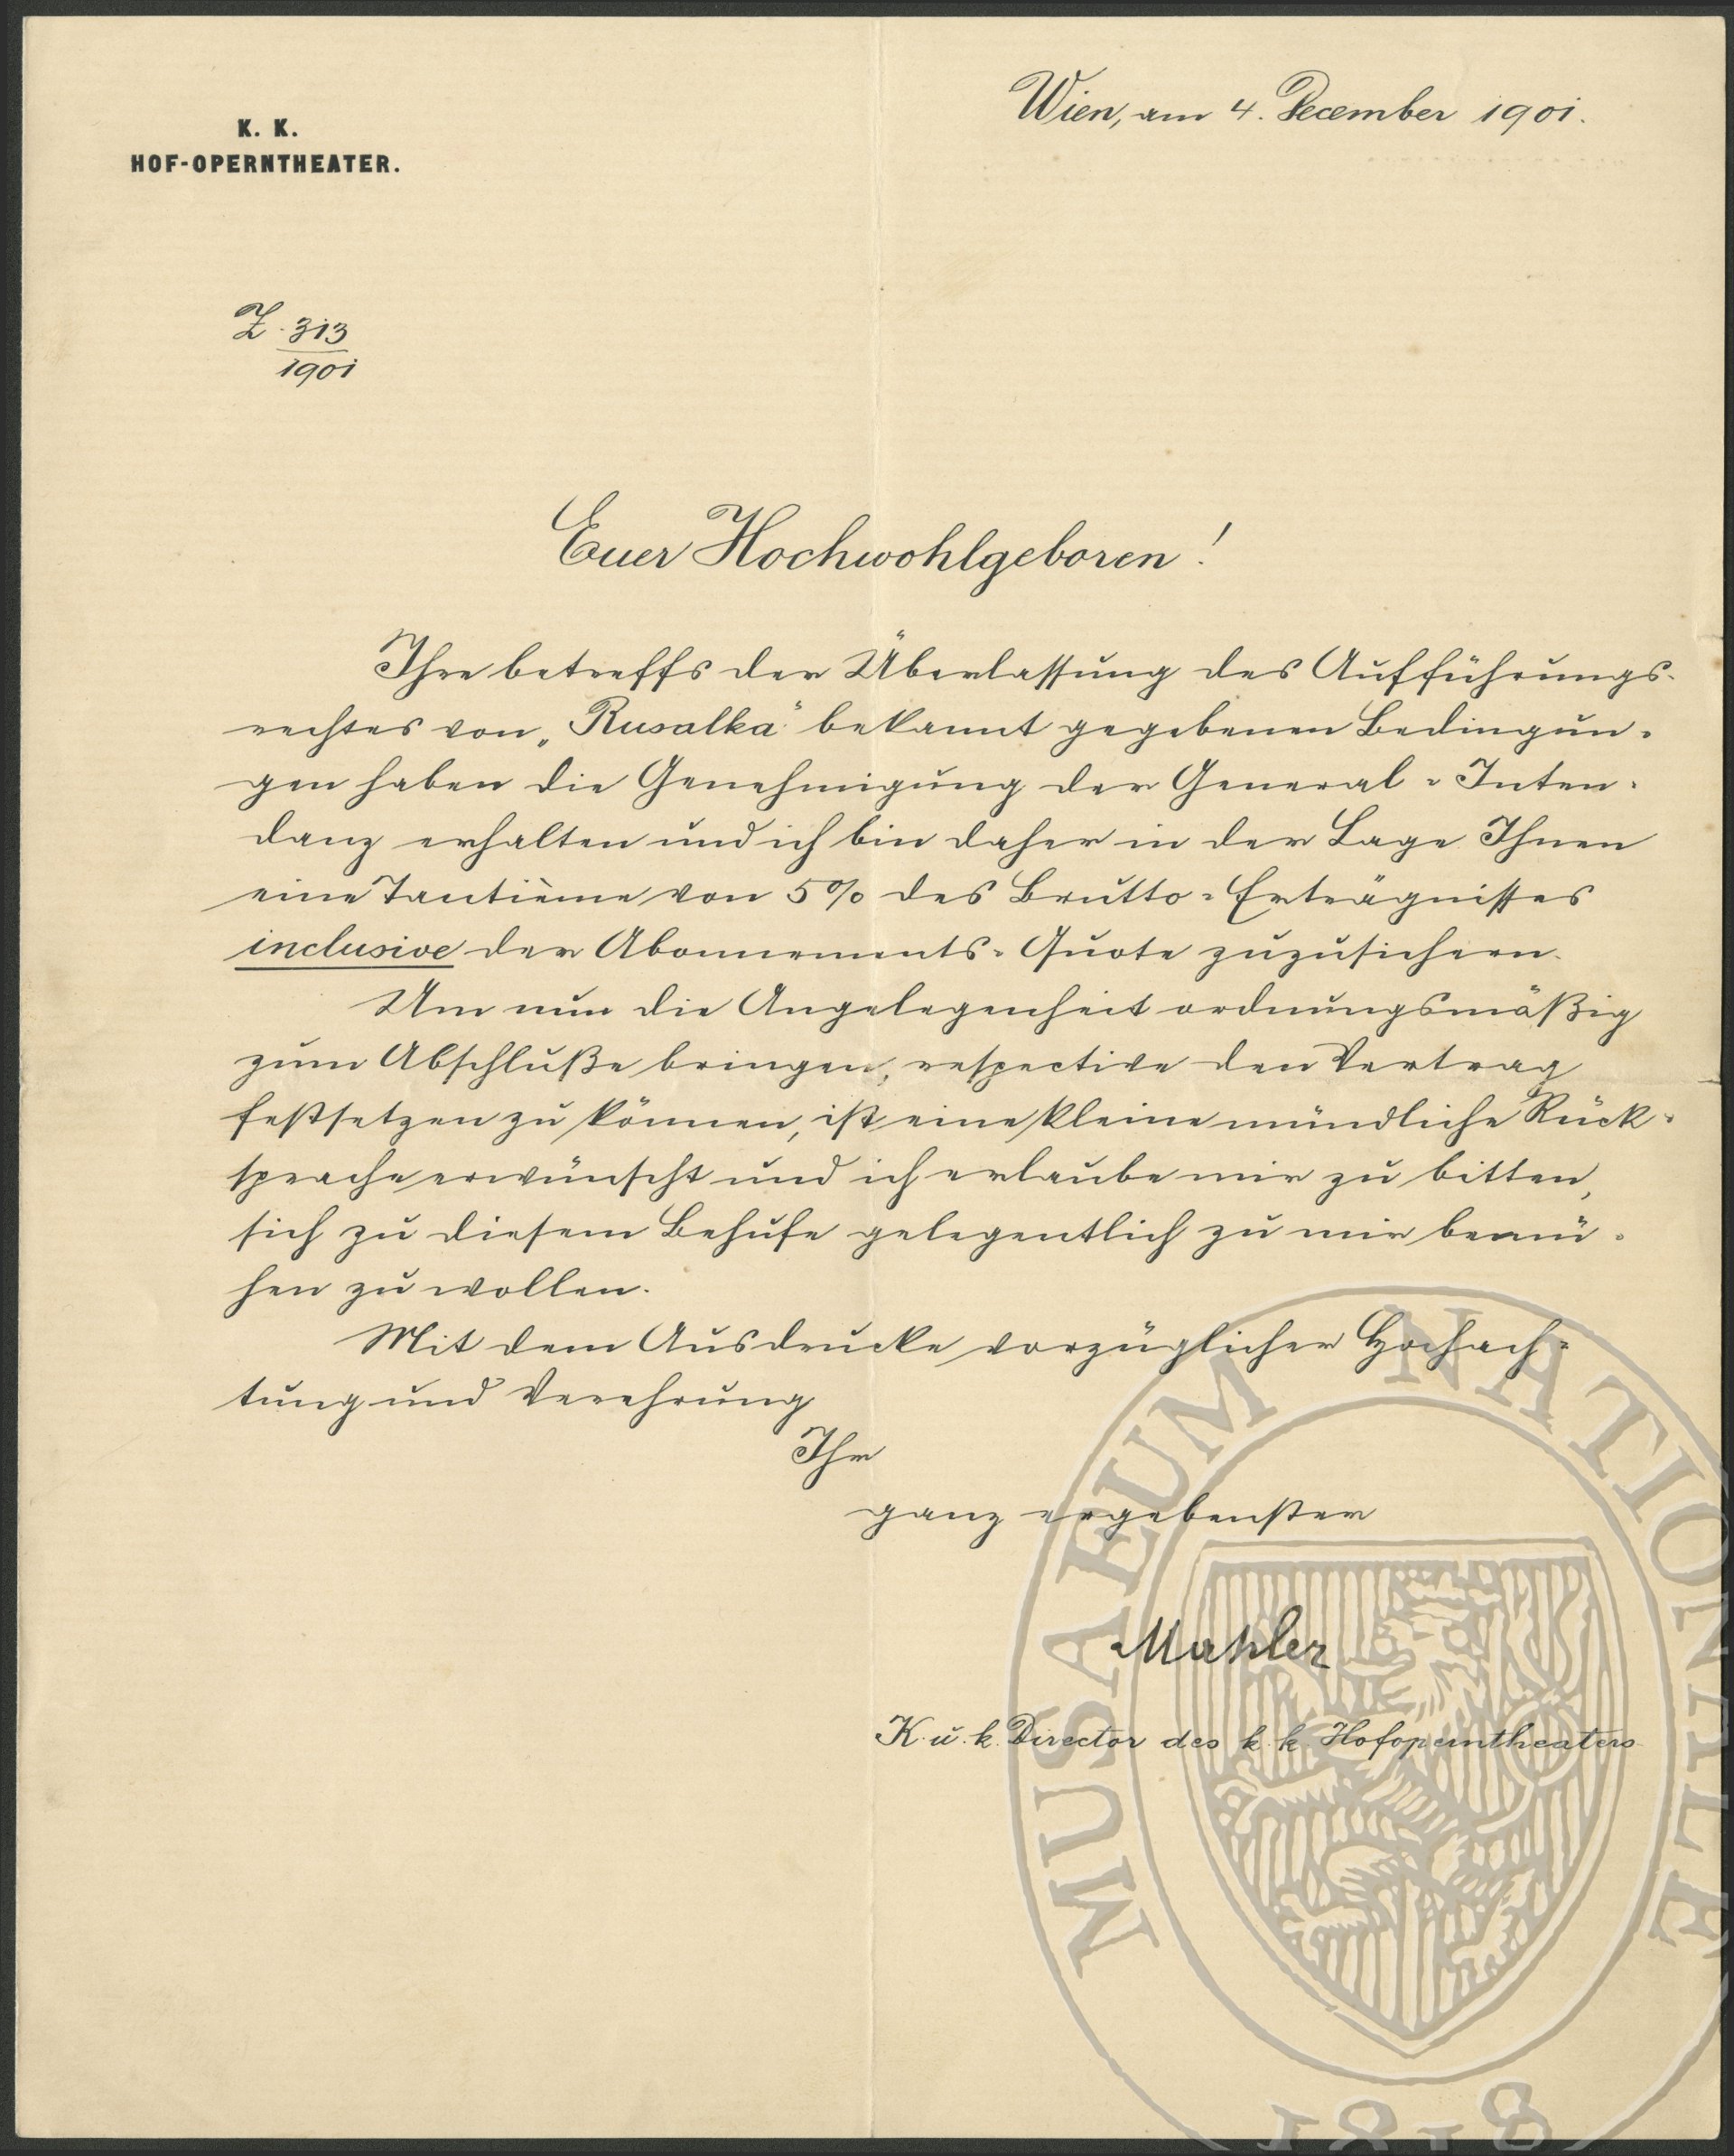 Wien, am 4. December 1901.
K. K.
HOF-OPERNTHEATER.
Z. 313
1901
Euer Hochwohlgeboren!
Ihre betreffs der Überlassung des Aufführungs-
rechtes von „Rusalka“ bekannt gegebenen Bedingun-
gen haben die Genehmigung der General-Inten-
danz erhalten und ich bin daher in der Lage Ihnen
eine Tantième von 5% des Brutto-Erträgnisses
inclusive der Abonnements-Quote zuzusichern.
Um nun die Angelegenheit ordnungsmäßig
zum Abschluße bringen, respective den Vertrag
festsetzen zu können, ist eine kleine mündliche Rück-
sprache erwünscht und ich erlaube mir zu bitten,
sich zu diesem Behufe gelegentlich zu mir bemü-
hen zu wollen.
Mit dem Ausdrucke vorzüglicher Hochach-
tung und Verehrung
Ihr
ganz ergebenster
Mahler
K. u. k. Director des k. k. Hofoperntheaters
MUSAEUM NATIONALE
1818